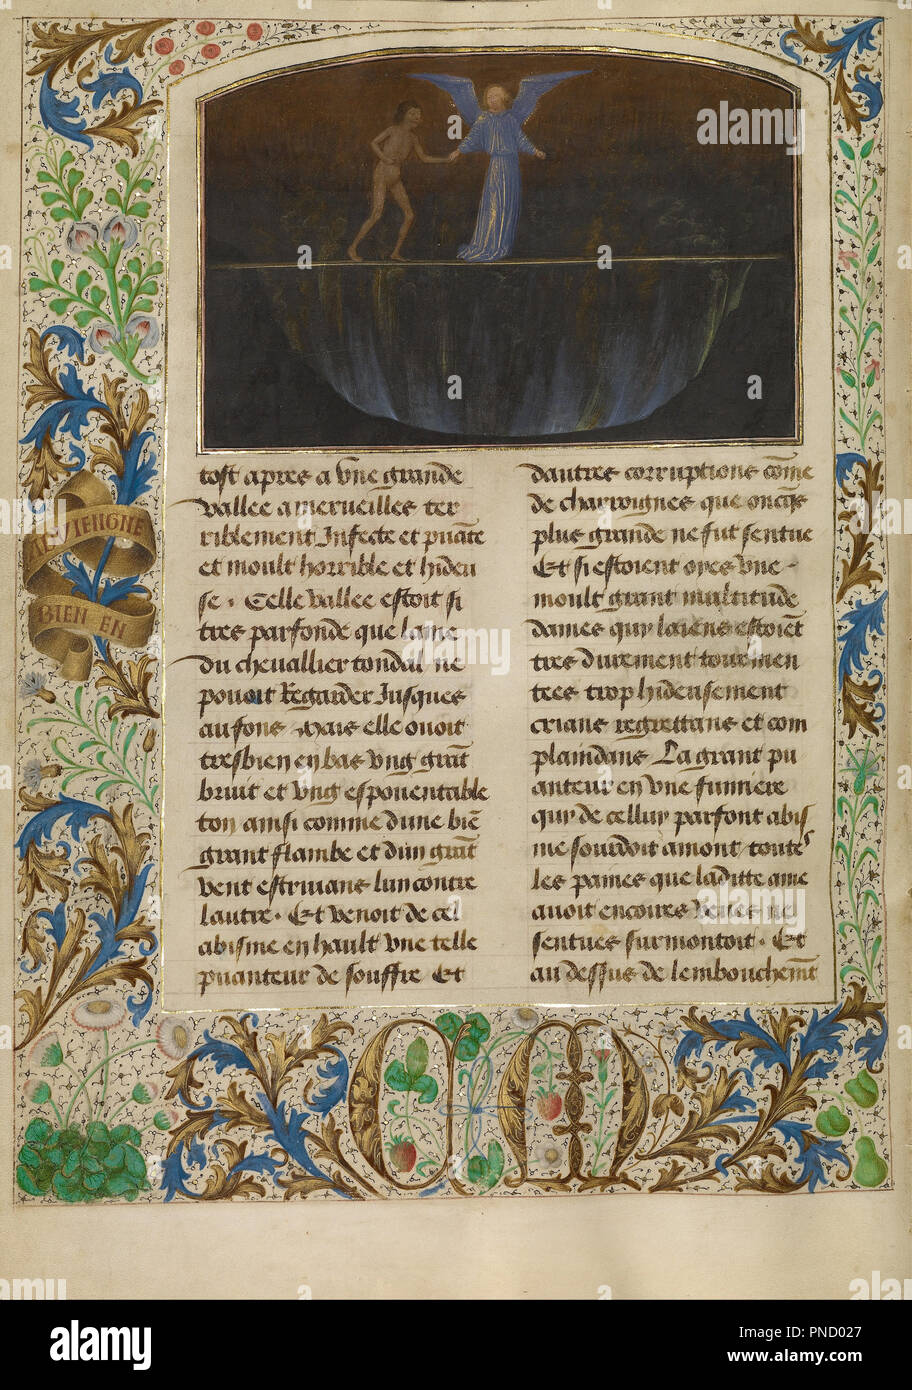 tost apres a vne grande
vallee a merueilles ter
riblement Infecte et puāte
et moult horrible et hideu
se . Celle vallee estoit si
tres parfonde que lame
du cheuallier tondal ne
pouoit Regarder Jusques
au fons . Mais elle ouoit
tresbien en bas vng grāt
bruit et vng espouentable
ton ainsi comme dune biē
grant flambe et dun grāt
vent estriuans lun contre
lautre . Et venoit de cel
abisme en hault vne telle
puanteur de souffre et
dautres corruptions cōme
de charroignes que oncqs
plus grande ne fut sentue
Et si estoient oyes vne
moult grant multitude
dames quy laiens estoiēt
tres durement tourmen
tees trop hideusement
crians regrettans et com
plaindans La grant pu
anteur en vne fumiere
quy de celluy parfont abis
me sourdoit amont toutes
les paines que laditte ame
auoit encoires veues ne
sentues surmontoit . Et
au dessus de lembouchemēt
AUVIENGNE
BIEN EN
CM
a alamy
alamy
Image ID: PND027
www.alamy.com